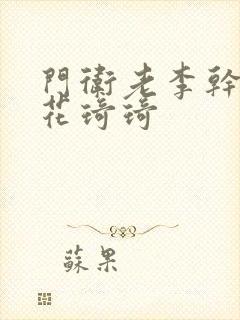 門衛老李幹
花琦琦
蘇果